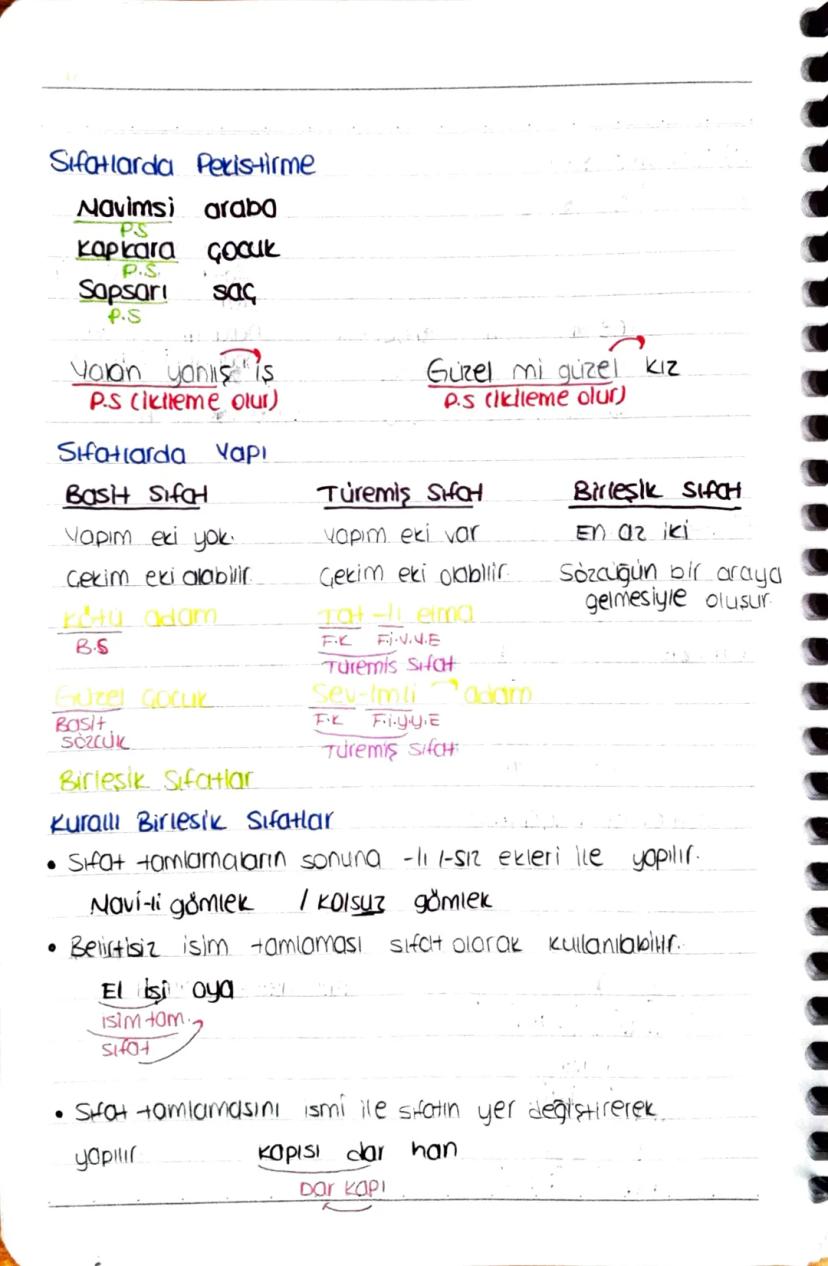 Sıfatlarda Pekistirme
Mavimsi araba
P.S
Kapkara çocuk
P.S.
Sapsarı saç
P.S
Yalan yanlış iş Güzel mi güzel kız
P.S (ikileme olur) P.S (ikileme olur)
Sıfatlarda Yapı
Basit Sıfat Türemiş Sıfat Birleşik Sıfat
Yapım eki yok. Yapım eki var En az iki
Çekim eki alabilir Çekim eki alabilir. Sözcüğün bir araya
gelmesiyle oluşur.
Kötü adam Tat-lı elma
B.S F.K F.i.Y.Y.E
Türemis Sıfat
Güzel çocuk Sev-imli adam
Basit F.K F.i.y.y.E
sözcük Türemiş sıfat
Birleşik Sıfatlar
Kurallı Birlesik Sıfatlar
• Sıfat tamlamaların sonuna -lı/-sız ekleri ile yapılır.
Mavi-li gömlek / Kolsuz gömlek
• Belirtisiz isim tamlaması sıfat olarak kullanılabilir.
El işi oya
isim tam.
sıfat
• Sıfat tamlamasını ismi ile sıfatın yer değiştirerek
yapılır kapısı dar han
Dar kapı